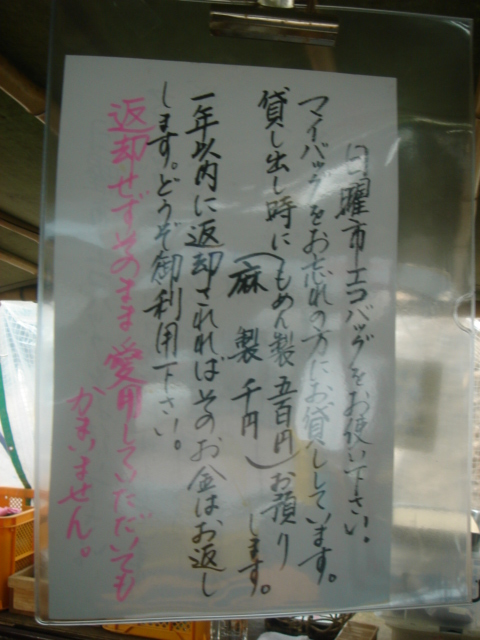 日曜市エコバッグをお使い下さい。
マイバッグをお忘れの方にお貸ししています。
貸し出し時に(もめん製五百円
麻製千円)お預り
します。
一年以内に返却されればそのお金はお返し
します。どうぞ御利用下さい。
返却せずそのまま愛用していただいても
かまいません。